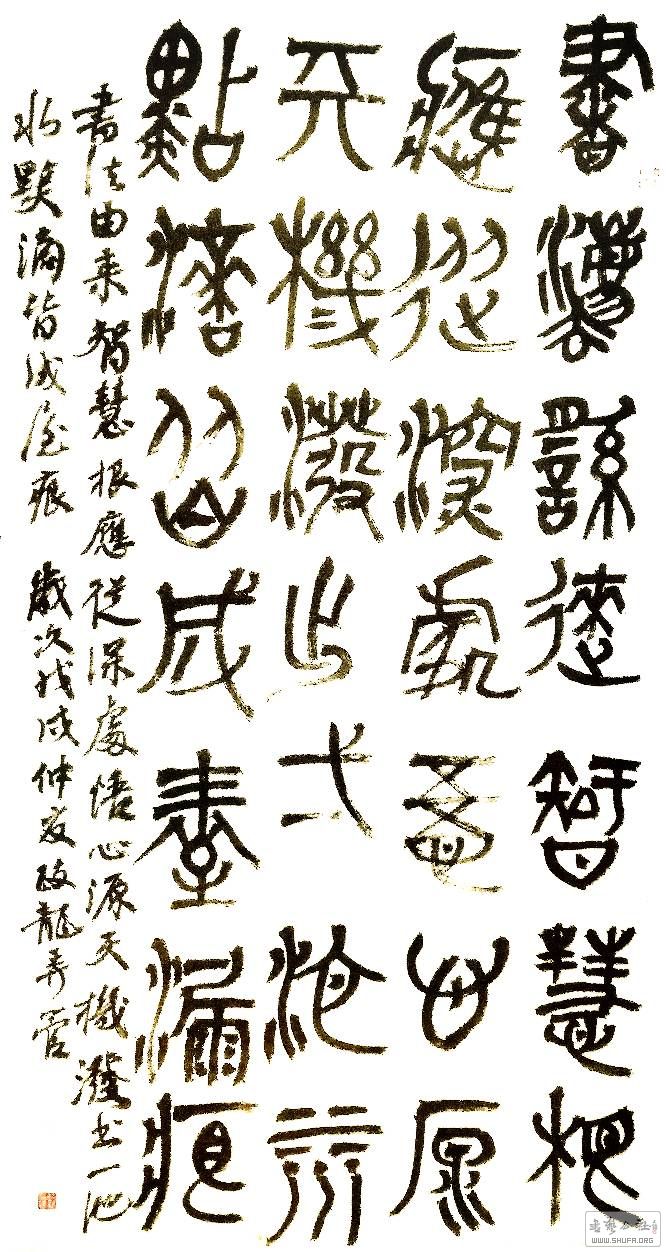 書灋繇徠智慧根
應從深處悟心原
天機潑出弌池水
點滴皆成屋漏痕
書法由来智慧根應從深處悟心源天機潑出一池
水點滴皆成屋痕 歲次戊戌仲夏政龍弄管
书艺公社
WWW.SHUFA.ORG